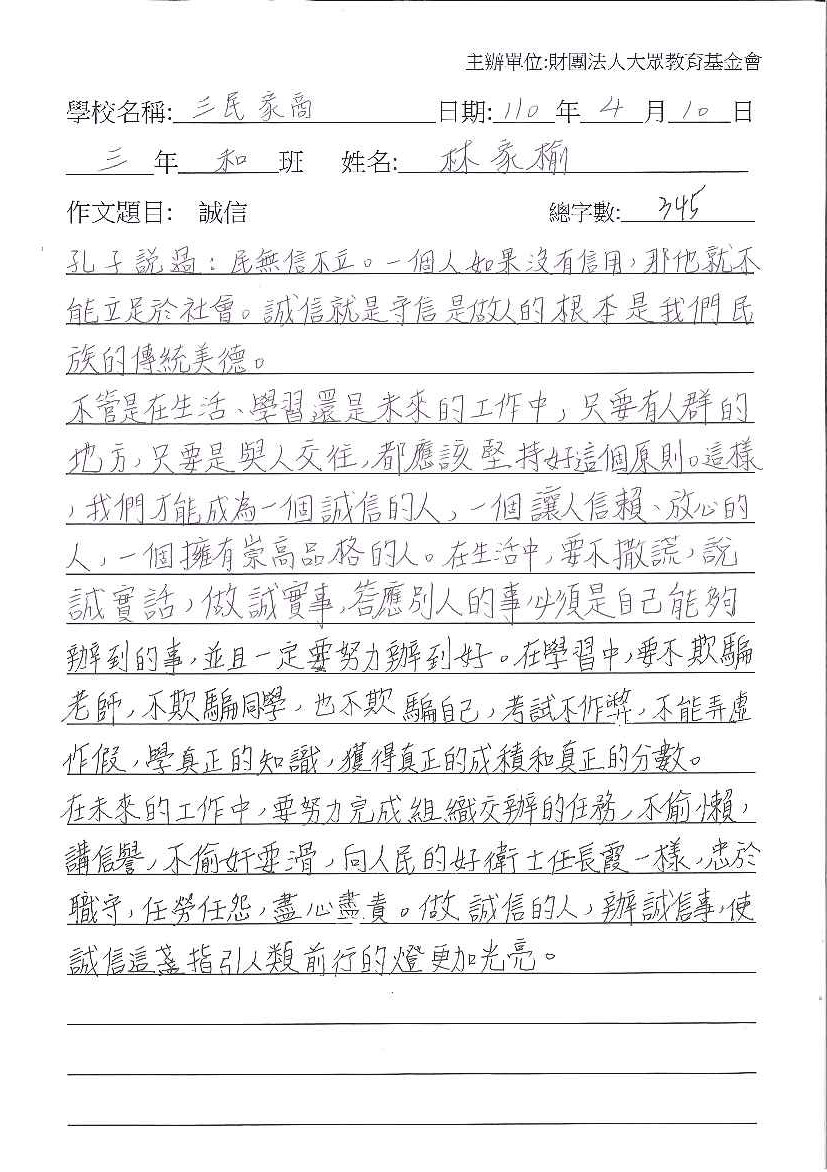 主辦單位:財團法人大眾教育基金會
學校名稱: 三民家商 日期: 110 年 4 月 10 日
三 年 和 班 姓名: 林家榆
作文題目: 誠信 總字數: 345
孔子說過:民無信不立。一個人如果沒有信用,那他就不
能立足於社會。誠信就是守信是做人的根本是我們民
族的傳統美德。
不管是在生活、學習還是未來的工作中,只要有人群的
地方,只要是與人交往,都應該堅持好這個原則。這樣
,我們才能成為一個誠信的人,一個讓人信賴、放心的
人,一個擁有崇高品格的人。在生活中,要不撒謊,說
誠實話,做誠實事,答應別人的事必須是自己能夠
辦到的事,並且一定要努力辦到好。在學習中,要不欺騙
老師,不欺騙同學,也不欺騙自己,考試不作弊,不能弄虛
作假,學真正的知識,獲得真正的成積和真正的分數。
在未來的工作中,要努力完成組織交辦的任務,不偷懶,
講信譽,不偷奸耍滑,向人民的好衛士任長霞一樣,忠於
職守,任勞任怨,盡心盡責。做誠信的人,辦誠信事,使
誠信這盞指引人類前行的燈更加光亮。